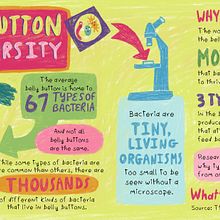 UTTON
RSITY
The average
belly button is home to
67 TYPES OF
BACTERIA
And not all
belly buttons
are the same.
While some types of bacteria are
common than others, there are
THOUSANDS
of different kinds of bacteria
that live in belly buttons.
Bacteria are
TINY,
LIVING
ORGANISMS
too small to be
seen without a
microscope.
WHY
The no
the bell
MO
that ba
to thri
3 TY
in the b
produc
that at
feed ba
Resear
why t
from
What
Source: T